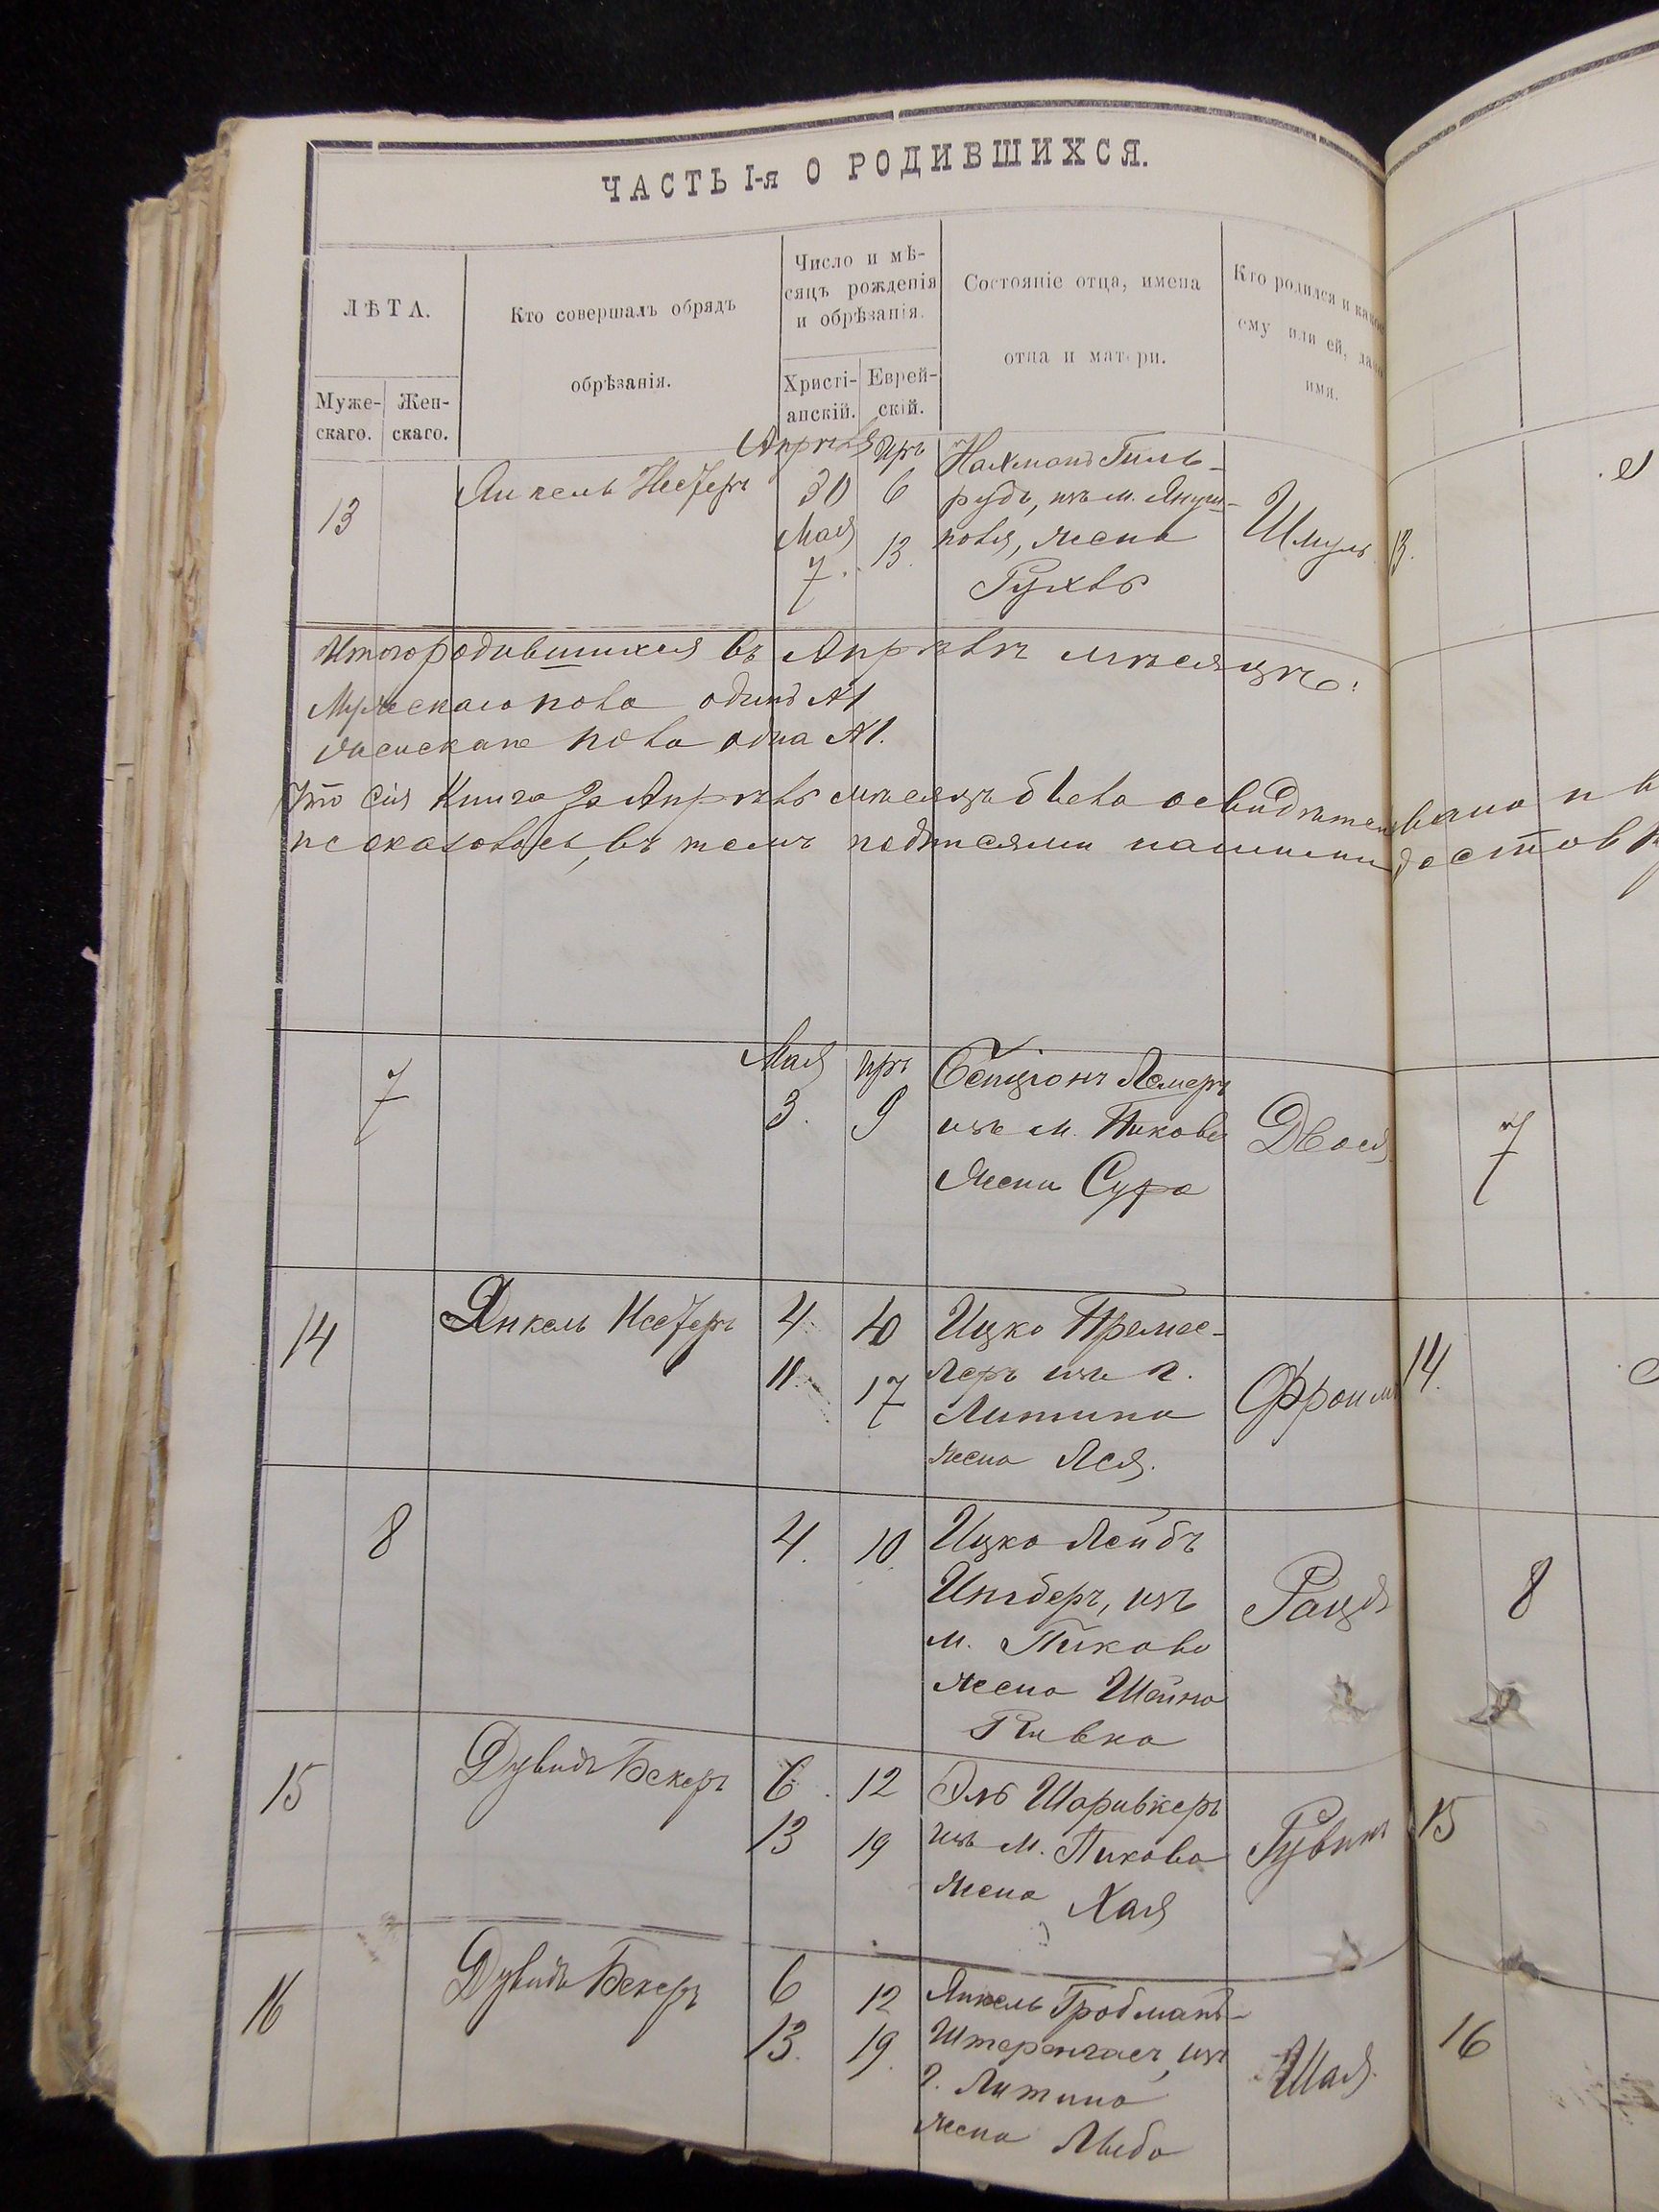 ЧАСТЬ I-я О РОДИВШИХСЯ.
ЛѢТА.
Муже-
скаго.
Жен-
скаго.
Кто совершалъ обрядъ
обрѣзанія.
Число и мѣ-
сяцъ рожденія
и обрѣзанія.
Христі-
анскій.
Еврей-
скій.
Состояніе отца, имена
отца и матери.
Кто родился и какое
ему или ей, дано
имя.
13
Янкель
Апрѣля
30
Мая
7
Иръ
6
13.
Нахманъ Гиль-
рудъ, изъ м. Януш-
поля, жена
Рухль
Шмуль
13.
Итого родившихся въ Апрѣлѣ мѣсяцѣ:
Мужскаго пола одинъ №1
женскаго пола одна №1.
Что сія Книга за Апрѣль мѣсяцъ была освидѣтельствована и
не оказалось, въ томъ подписями нашими
7
Мая
3.
Иръ
9
Бенціонъ Лемеръ
изъ м. Пикова
жена Сура
Двося
7
14
Янкель
4
11.
10
17
Ицко
изъ г.
Литина
жена Лея.
Фроим
14.
8
4.
10.
Ицко Лейбъ
Ингберъ, изъ
м. Пикова
жена Шейна
Ривка
8
15
Дувидъ Бекеръ
6.
13
12
19
Эль Шаривкеръ
изъ м. Пикова
жена Хая
Рувин
15
16
Дувидъ Бекеръ
6
13.
12
19.
Янкель Гробманъ-
изъ
г. Литина
жена Либа
Шая.
16